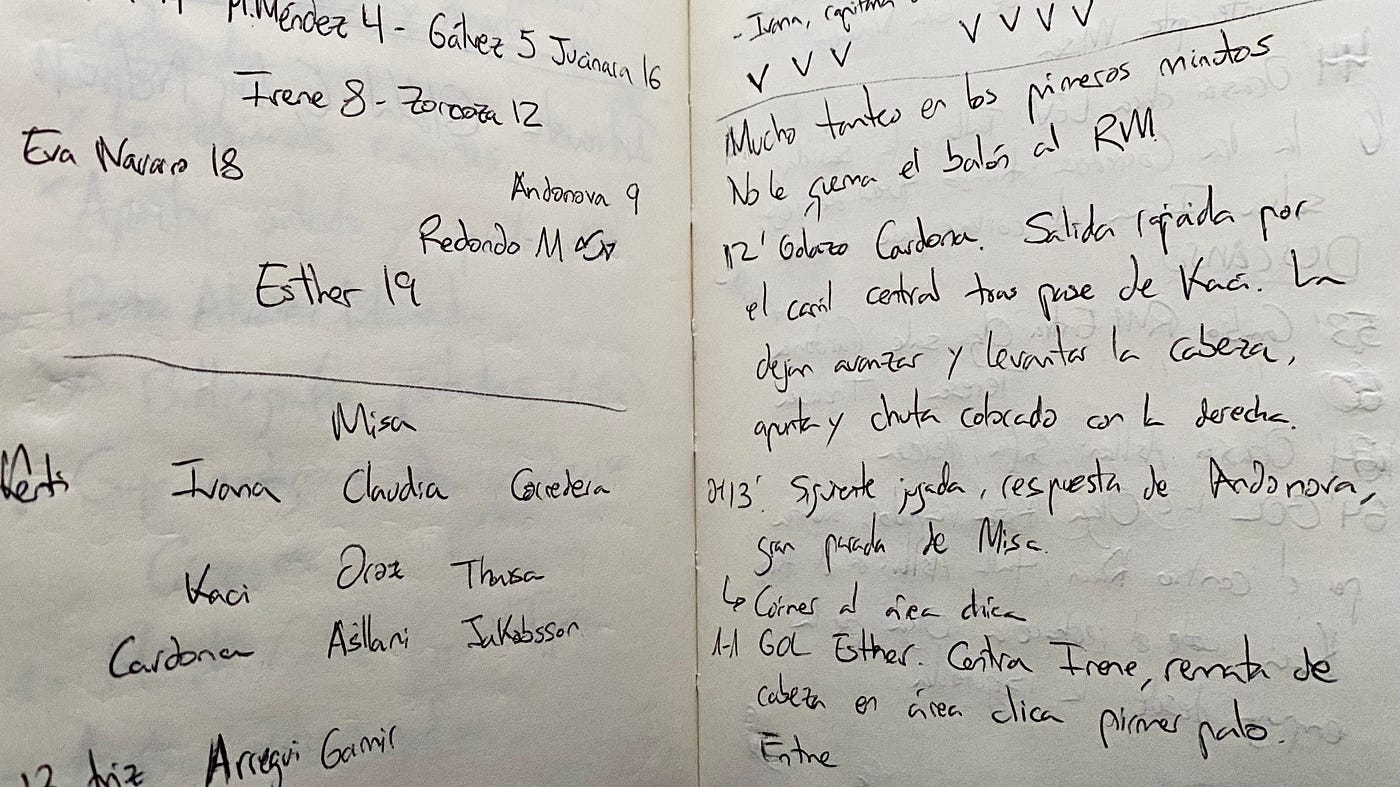 M.Méndez 4 - Gálvez 5 Jucinara 16
Irene 8 - Zornoza 12
Eva Navarro 18
Andonova 9
Redondo
Esther 19
Misa
Kenti
Ivana Claudia Corredera
Kaci Oroz Thaisa
Cardona Asllani Jakobsson
Arregui Gamir
- Ivana, capitana
V V V V V V V
Mucho tanteo en los primeros minutos
No le quema el balón al RM
12' Golazo Cardona. Salida rápida por
el carril central tras pase de Kaci. La
dejan avanzar y levantar la cabeza,
apunta y chuta colocado con la derecha.
13' Siguiente jugada, respuesta de Andonova,
gran parada de Misa.
↳ Córner al área chica
1-1 GOL Esther. Centra Irene, remata de
cabeza en área chica primer palo.
Entre